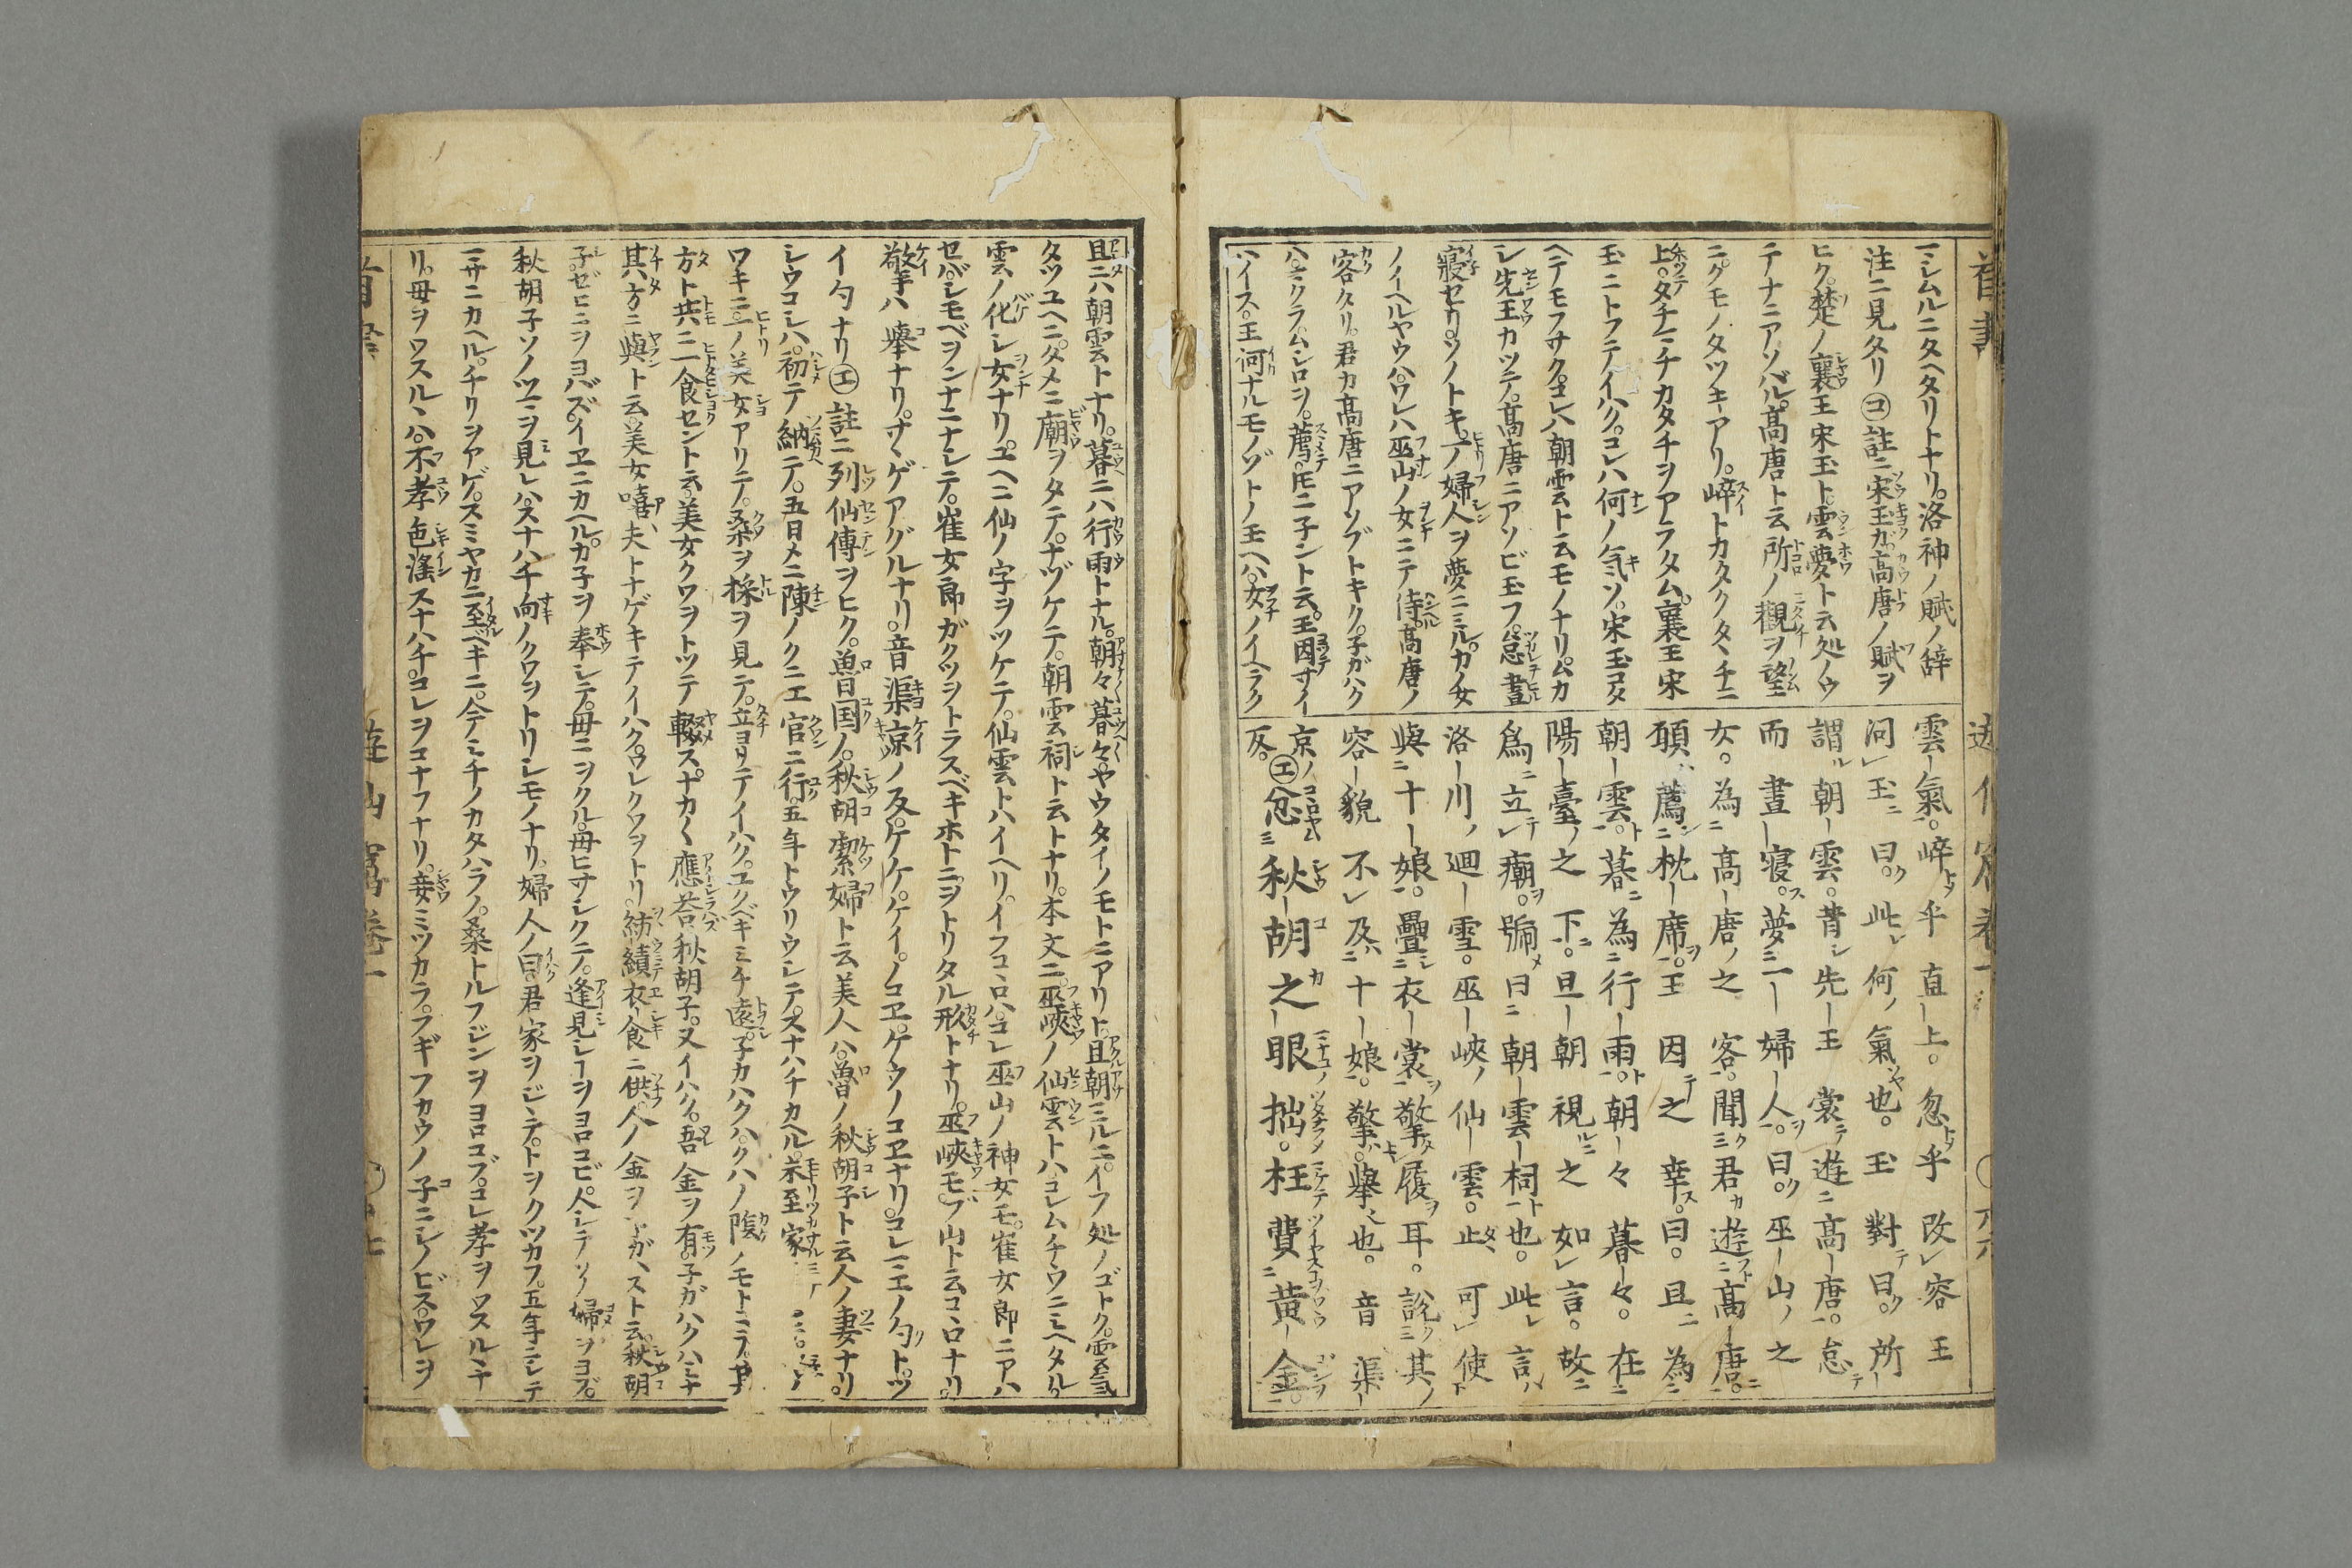 首書
遊仙窟巻一
ーシムルニタヘタリトナリ。洛神ノ賦ノ辞
注ニ見タリ㋙註ニ宋玉ガ高唐ノ賦ヲ
ヒク。楚ノ襄王宋玉ト。雲夢ト云処ノウ
テナニアソバル。高唐ト云所ノ觀ヲ望
ニ。クモノタツキアリ。崪トカタクタヽチニ
上。タチーチカタチヲアラタム。襄王宋
玉ニトフテイハク。コレハ何ノ気ソ。宋玉コタ
ヘテモフサク。コレハ朝雲ト云モノナリ。ムカ
シ先王カツテ。高唐ニアソビ玉フ。怠晝
寢セリ。ソノトキ。一ノ婦人ヲ夢ニミル。カノ女
ノイヘルヤウハ。ワレハ巫山ノ女ニテ侍。高唐ノ
客タリ。君カ高唐ニアソブトキク。子ガハク
ハ。マクラ。ムシロヲ。薦。モニ子ント云。王因サイー
ハイス。王何ナルモノゾトノ玉ヘハ。女ノイヘラク
雲ー氣。崪乎直ー上。忽乎改容王
問玉曰。此何ノ氣也。玉對曰。所ー
謂朝ー雲。昔先ー王甞遊高ー唐。怠
而晝ー寝。夢一ー婦ー人。曰。巫ー山ノ之
女。為高ー唐ノ之客。聞君遊高ー唐。
願薦枕ー席。王因之幸。曰。旦為
朝ー雲。暮為行ー雨。朝ー々暮ー々。在
陽ー臺ノ之下。旦ー朝視之如言。故
爲立廟。号曰朝ー雲ー祠也。此言
洛ー川ノ廻ー雪。巫ー峽ノ仙ー雲。止可使
與十ー娘。疊衣ー裳擎履耳。說其ノ
容ー貌不及十ー娘。擎。擧也。音渠ー
京ノ反。㋓忿秋ー胡之ー眼拙。枉費黄ー金。
且ニハ朝雲トナリ。暮ニハ行雨トナル。朝々暮々。ヤウタイノモトニアリト。且朝ミルニ。イフ処ノゴトク。雲氣
タツユヘニ。タメニ廟ヲタテ。ナヅケテ。朝雲祠ト云トナリ。本文ニ。巫峽ノ仙雲トハ。コレムチウニミヘタル。
雲ノ化シ女ナリ。ユヘニ仙ノ字ヲツケテ。仙雲トハイヘリ。イフコヽロハ。コレ巫山ノ神女モ。崔女郎ニアハ
セバ。シモベヲンナニナシテ。崔女郎ガクツヲトラスベキホトニヲトリタル形トナリ。巫峽モブ山ト云コヽロナリ。
擎ハ擧ナリ。サヽゲアグルナリ。音渠京ノ反。ケケ。ケイ。ノコヱ。ケウノコヱナリ。コレニエノ勺ト。ツ
イ勺ナリ㋓註ニ列仙傳ヲヒク。魯国ノ。秋胡潔婦ト云美人ハ。魯ノ秋胡子ト云人ノ妻ナリ。
シウコシハ。初テ納テ。五日メニ陳ノクニエ官ニ行。五年トウリウシテ。スナハチカヘル。未至家
ワキニ。一ノ美女アリテ。桑ヲ採ヲ見テ。立ヨリテイハク。ユクベキミチ遠。子カハクハ。クハノ陰ノモトニ
方ト共ニ一食セント云。美女クワヲトツテ輟ス。ナカク應荅秋胡子。又イハク。吾金ヲ有。子ガハクハミナ
其ハ方ニ與ト云美女嘻夫トナゲキテイハク。ワレクワヲトリ。紡績衣食ニ供。人ノ金ヲ子ガハスト云。秋胡
子。ゼヒニヲヨバズ。イヱニカヘル。カ子ヲ奉シテ。母ニヲクル。母ヒサシクニテ。逢見シーヲヨロコビ。人シテソノ婦ヲヨブ。
秋胡子ソノツマヲ見レハ。スナハチ向ノクワヲトリシモノナリ。婦人ノ曰。君家ヲジヽテ。トヲクツカフ。五年ニシテ
ーサニカヘル。チリヲアゲ。スミヤカニ至ベキニ。今テミチノカタハラノ。桑トルフジンヲヨロコブ。コレ孝ヲワスルヽナ
リ。母ヲワスルヽハ。不孝色滛スナハチ。コレヲコナフナリ。妾ミツカラ。フギフカウノ子ニシノビズ。ワレヲ
首書
遊仙窟巻一